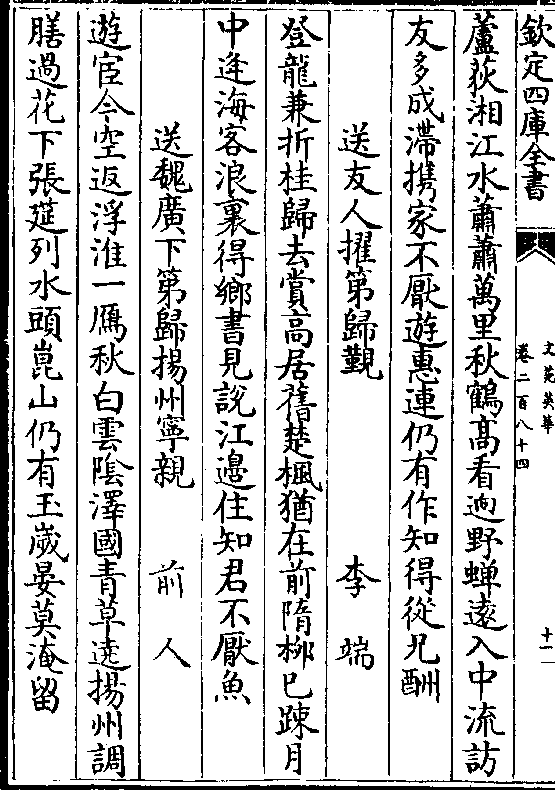 欽定四庫全書
文苑英華
卷二百八十四
十一
蘆荻湘江水蕭蕭萬里秋鶴髙看逈野蟬逺入中流訪
友多成滯携家不厭遊惠連仍有作知得從兄酬
送友人擢第歸覲 李端
登龍兼折桂歸去賞高居舊楚楓猶在前隋柳已踈月
中逢海客浪裏得鄉書見説江邊住知君不厭魚
送魏廣下第歸揚州寧親 前人
遊宦今空返浮淮一鴈秋白雲陰澤國青草遶揚州調
膳過花下張筵列水頭崑山仍有玉嵗晏莫淹留